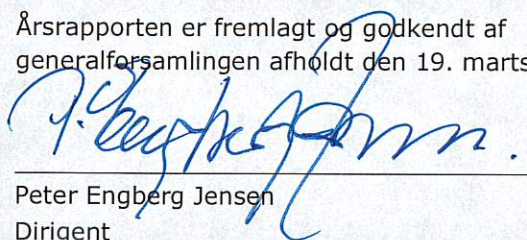 Årsrapporten er fremlagt og godkendt af
generalforsamlingen afholdt den 19. marts
Peter Engberg Jensen
Dirigent